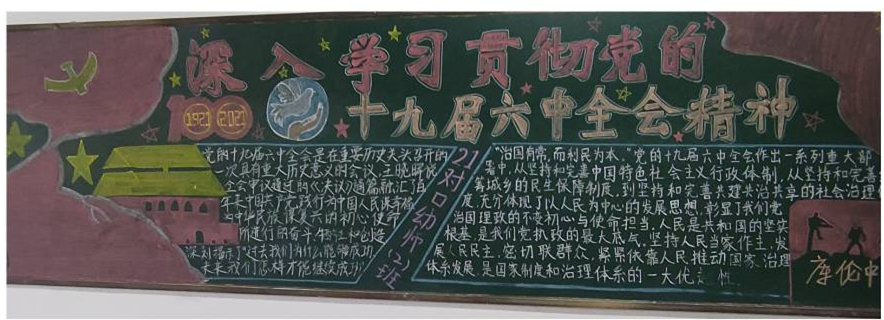 深入学习贯彻党的
十九届六中全会精神
100
1921 2021
党的十九届六中全会是在重要历史关头召开的
一次具有重大历史意义的会议,
全会审议通过的《决议》通篇贯
年来中国共产党践行为中国人民谋幸福
为中华民族谋复兴的初心使命
所进行的奋斗
深刻揭示了过去我们为什么能够成功,
未来我们怎样才能继续成功
21对口幼师(2)班
“治国有常,而利民为本。”党的十九届六中全会作出一系列重大部
署中,从坚持和完善中国特色社会主义行政体制,从坚持和完善
城乡的民生保障制度,到坚持和完善共建共治共享的社会治理
度,充分体现了以人民为中心的发展思想,彰显了我们党
治国理政的不变初心与使命担当。人民是共和国的坚实
根基,是我们党执政的最大底气。坚持人民当家作主,发
展人民民主,密切联群众,紧紧依靠人民推动国家治理
体系发展,是国家制度和治理体系的一大优
库伦中